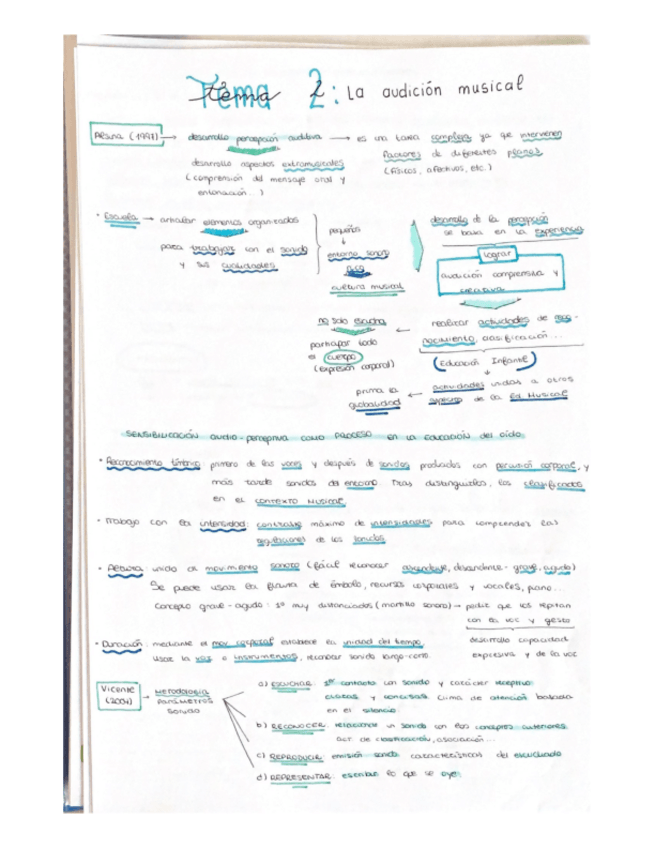 Tema 2: La audición musical
Alsina (1997) → desarrollo percepción auditiva → es una tarea compleja ya que intervienen
desarrollo aspectos extramusicales factores de diferentes planos
(comprensión del mensaje oral y (físicos, afectivos, etc.)
entonación...)
· Escuela → articular elementos organizados
para trabajar con el sonido
y sus cualidades
pequeños
↓
entorno sonoro
rico
cultura musical
desarrollo de la percepción
se basa en la experiencia
lograr
audición comprensiva y
creativa
no solo escucha,
participar todo
el cuerpo
(expresión corporal)
← realizar actividades de reco-
nocimiento, clasificación...
(Educación Infantil)
↓
prima la ← actividades unidas a otros
globalidad aspectos de la Ed. Musical
SENSIBILIZACIÓN audio-perceptiva como PROCESO en la EDUCACIÓN del OÍDO:
· Reconocimiento tímbrico: primero de las voces y después de sonidos producidos con percusión corporal, y
más tarde sonidos del entorno. Tras distinguirlos, los clasificados
en el CONTEXTO MUSICAL.
· Trabajo con la intensidad: contraste máximo de intensidades para comprender las
regulaciones de los sonidos
· Altura: unido al movimiento sonoro (fácil reconocer ascendente, descendente - grave, agudo)
Se puede usar la flauta de émbolo, recursos corporales y vocales, piano...
Concepto grave-agudo: 1º muy distanciados (martillo sonoro) → pedir que los repitan
con la voz y gesto
desarrollo capacidad
expresiva y de la voz
· Duración: mediante el mov. corporal establece la unidad del tiempo.
Usar la voz o instrumentos, reconocer sonido largo-corto.
Vicente
(2009)
→ METODOLOGÍA
PARÁMETROS
SONIDO
a) ESCUCHAR: 1er contacto con sonido y carácter receptivo.
claras y concisas. Clima de atención basada
en el silencio.
b) RECONOCER: relacionar un sonido con los conceptos anteriores.
act. de clasificación, asociación...
c) REPRODUCIR: emisión sonido características del escuchado
d) REPRESENTAR: escribir lo que se oye.